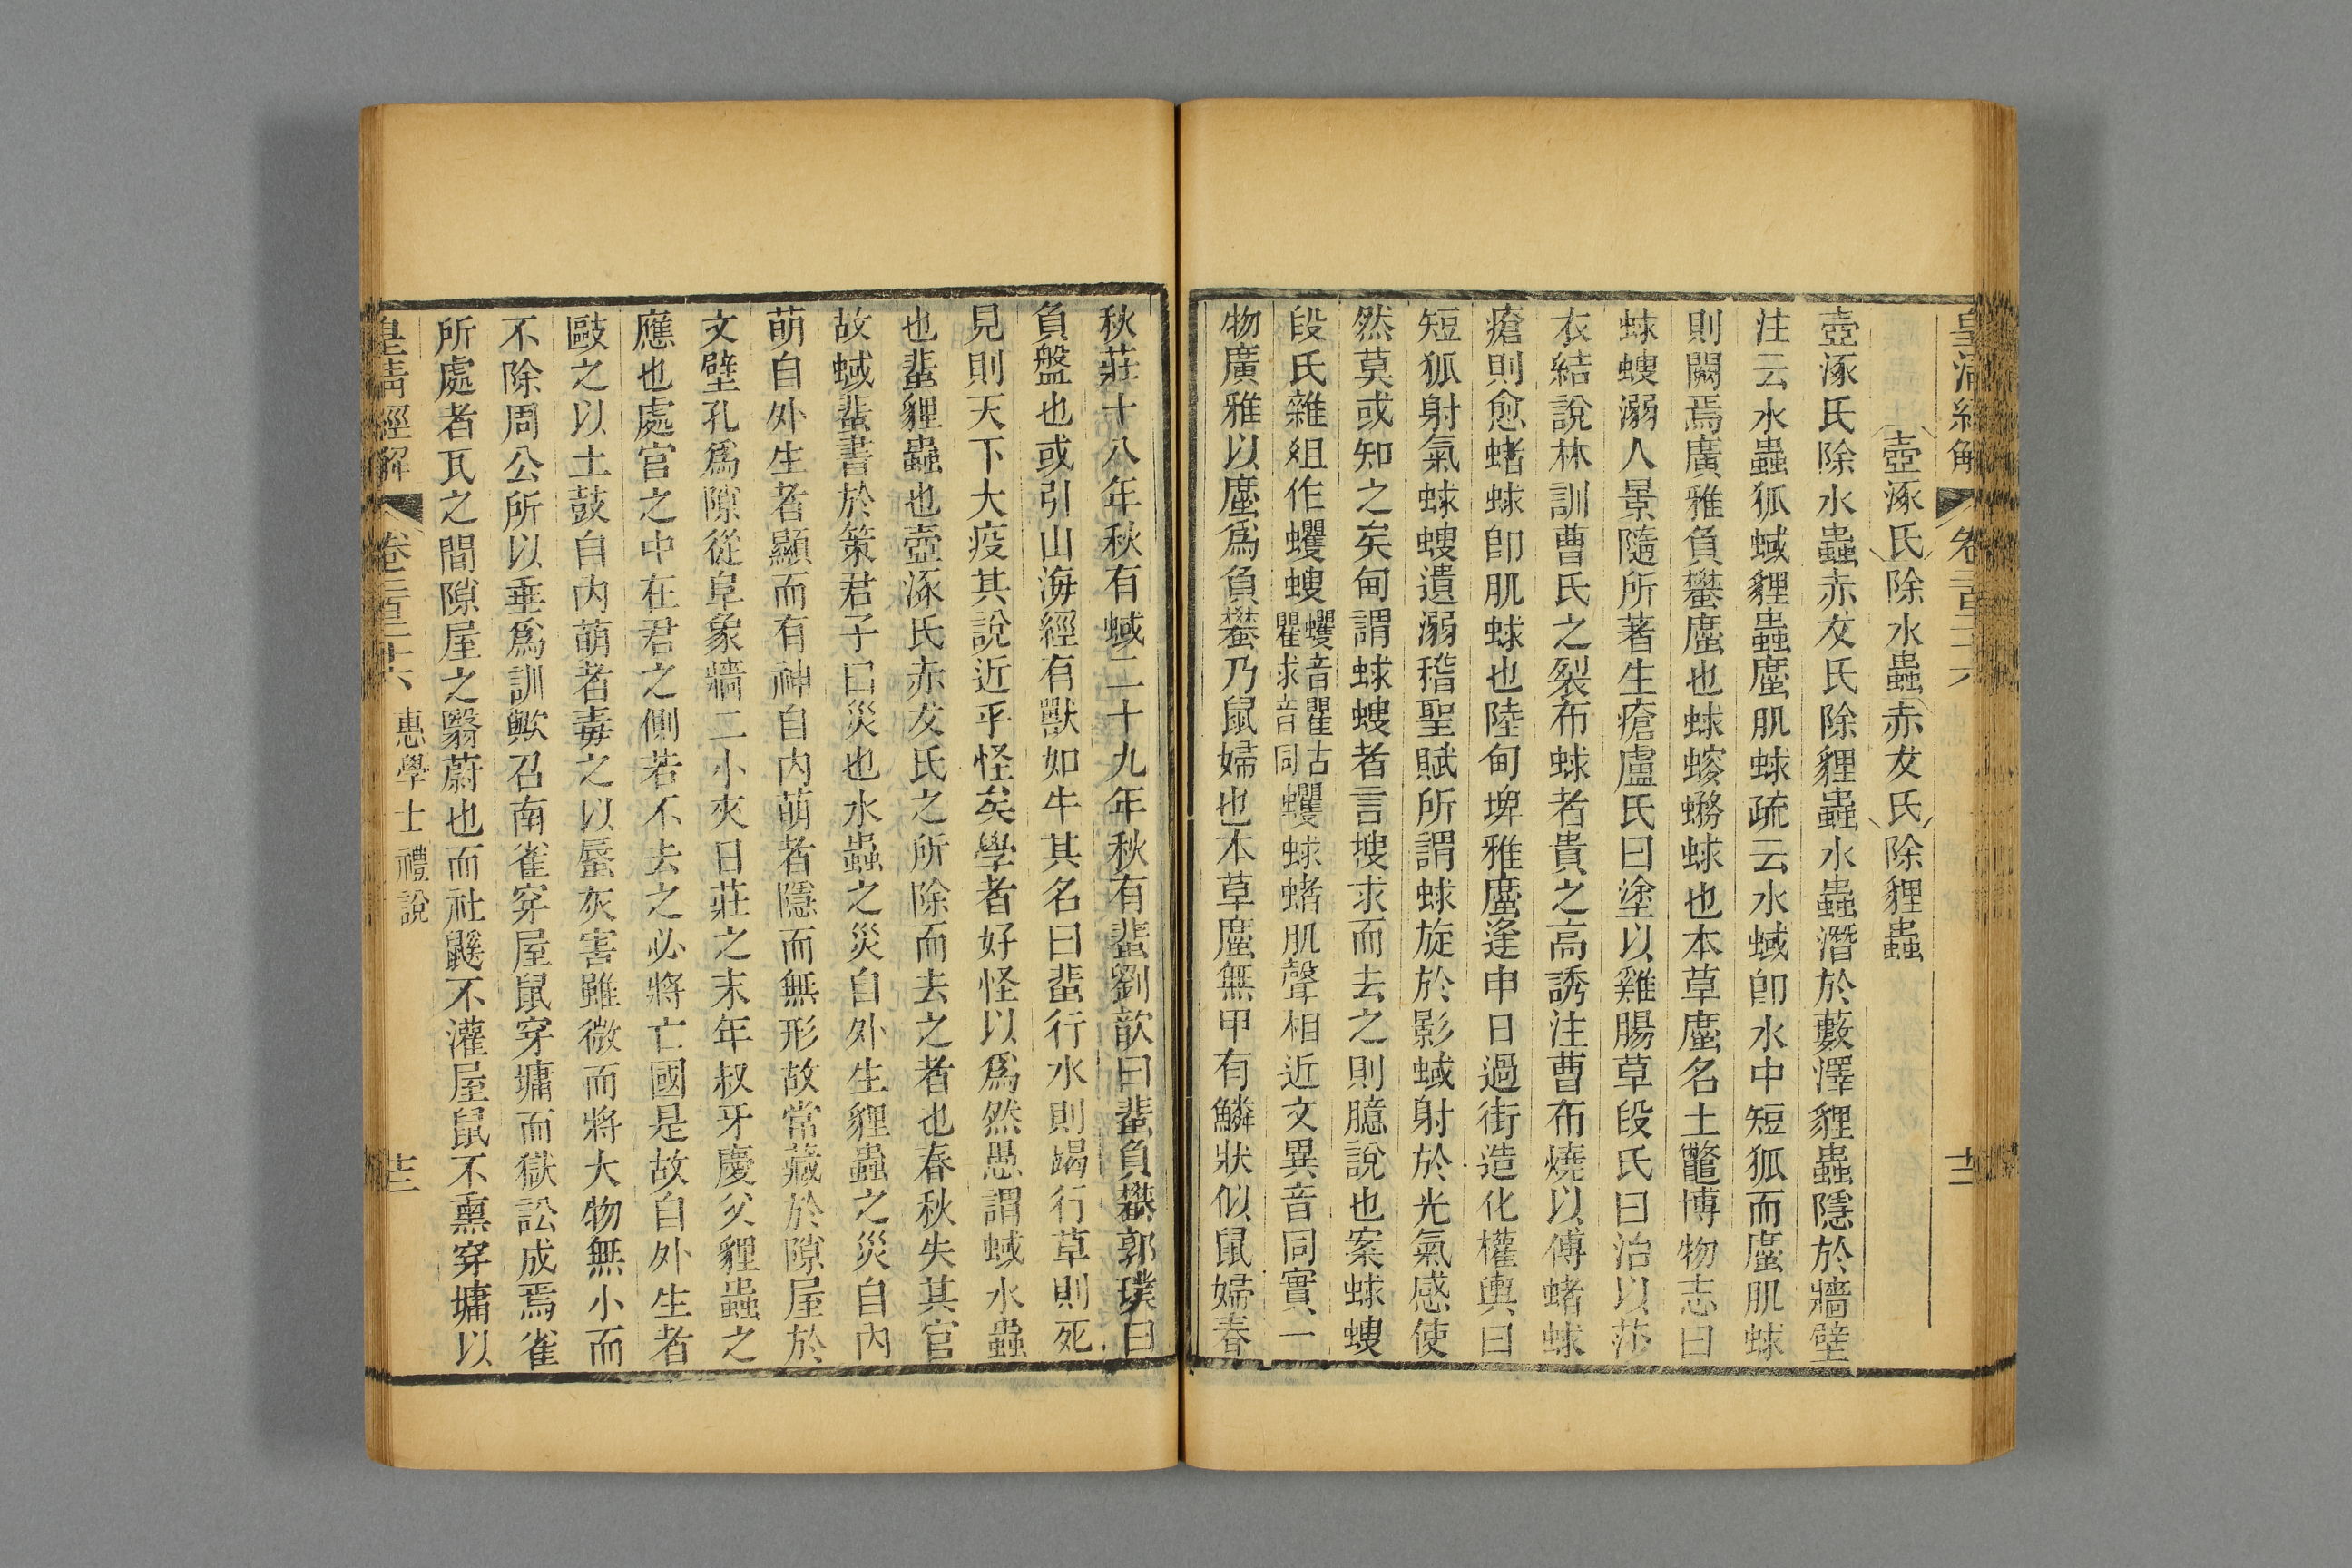 壺涿氏除水蟲赤犮氏除貍蟲
壺涿氏除水蟲赤犮氏除貍蟲水蟲潛於藪澤貍蟲隱於牆壁
注云水蟲狐蜮貍蟲䗪肌蛷疏云水蜮卽水中短狐而䗪肌蛷
則闕焉廣雅負蠜䗪也蛷螋蟧蛷也本草䗪名土鼈博物志曰
蛷螋溺人景隨所著生瘡盧氏曰塗以雞腸草段氏曰治以莎
衣結說林訓曹氏之裂布蛷者貴之高誘注曹布燒以傅蝫蛷
瘡則愈蝫蛷卽肌蛷也陸甸埤雅䗪逢申日過街造化權輿曰
短狐射氣蛷螋遺溺稽聖賦所謂蛷旋於影蜮射於光氣感使
然莫或知之矣甸謂蛷螋者言搜求而去之則臆說也案蛷螋
段氏雜組作蠼螋蠼音瞿古瞿求音同蠼蛷蝫肌聲相近文異音同實一
物廣雅以䗪爲負蠜乃鼠婦也本草䗪無甲有鱗狀似鼠婦春
秋莊十八年秋有蜮二十九年秋有蜚劉歆曰蜚負蠜郭璞曰
負盤也或引山海經有獸如牛其名曰蜚行水則竭行草則死
見則天下大疫其說近乎怪矣學者好怪以爲然愚謂蜮水蟲
也蜚貍蟲也壺涿氏赤犮氏之所除而去之者也春秋失其官
故蜮蜚書於策君子曰災也水蟲之災自外生貍蟲之災自內
萌自外生者顯而有神自內萌者隱而無形故常藏於隙屋於
文壁孔爲隙從𨸏象牆二小夾日莊之末年叔牙慶父貍蟲之
應也處官之中在君之側若不去之必將亡國是故自外生者
敺之以土鼓自內萌者毒之以蜃灰害雖微而將大物無小而
不除周公所以垂爲訓歟召南雀穿屋鼠穿墉而獄訟成焉雀
所處者瓦之間隙屋之翳蔚也而社鼷不灌屋鼠不熏穿墉以
皇清經解 卷二百二十六 惠學士禮說